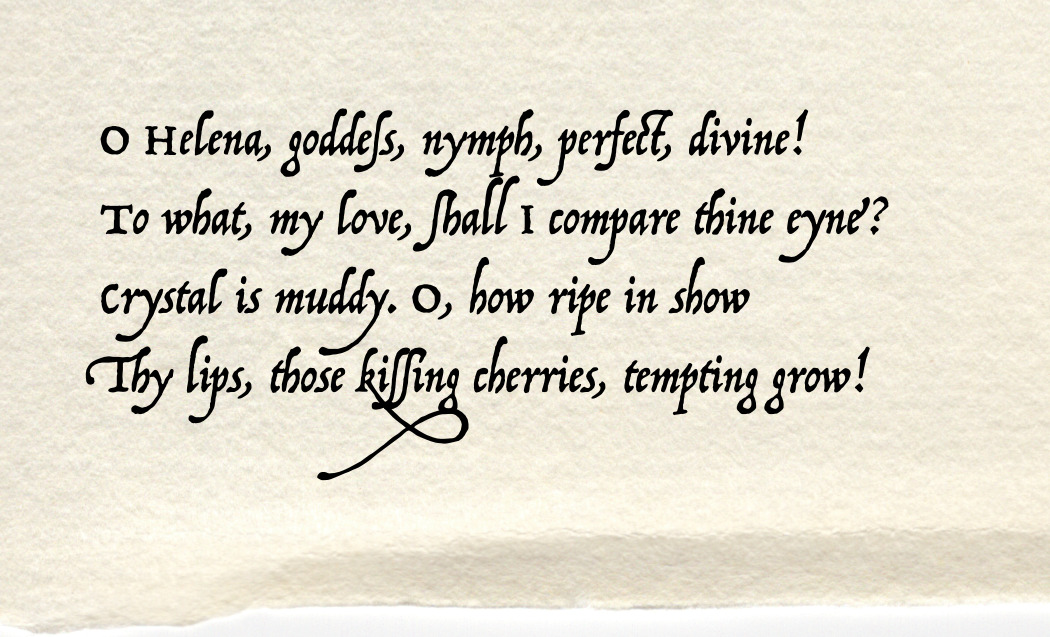 O Helena, goddeſs, nymph, perfect, divine!
To what, my love, ſhall I compare thine eyne'?
Crystal is muddy. O, how ripe in show
Thy lips, those kiſſing cherries, tempting grow!